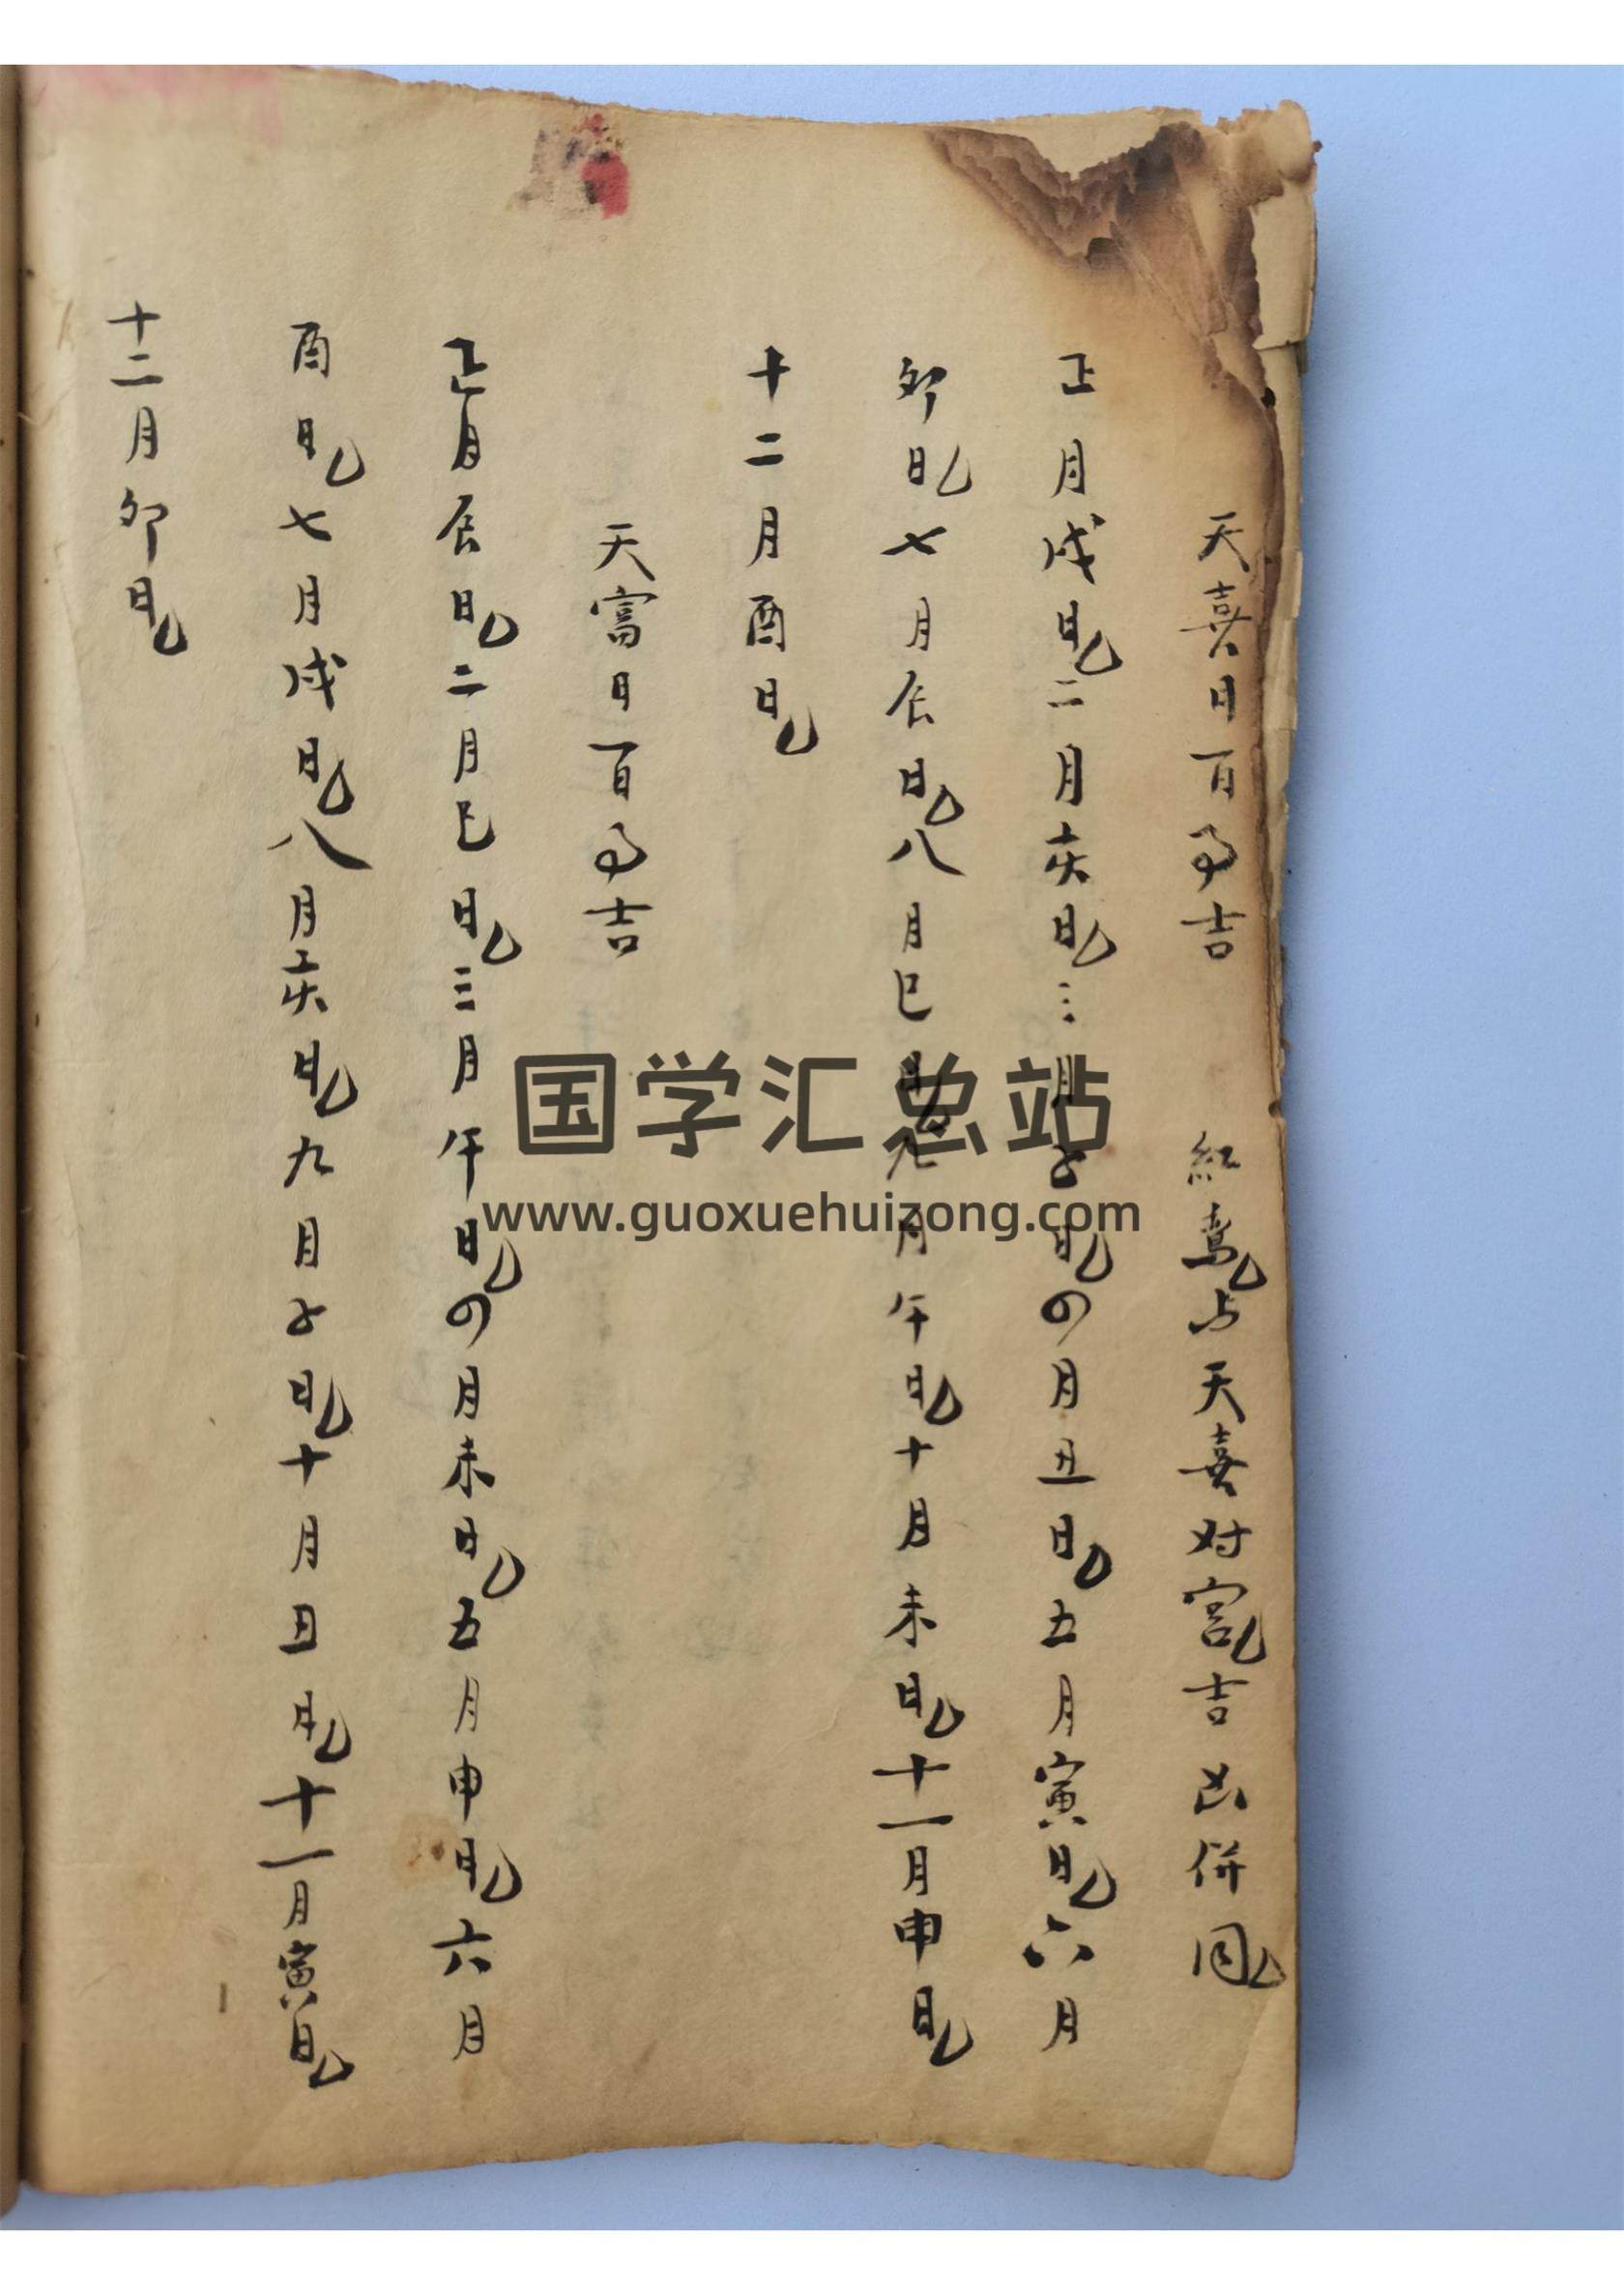 天喜日百事吉 紅鸞与天喜对宫吉凶併同
正月戌日二月亥日三月子日四月丑日五月寅日六月
卯日七月辰日八月巳日九月午日十月未日十一月申日
十二月酉日
天富日百事吉
正月辰日二月巳日三月午日四月未日五月申日六月
酉日七月戌日八月亥日九月子日十月丑日十一月寅日
十二月卯日
国学汇总站
www.guoxuehuizong.com